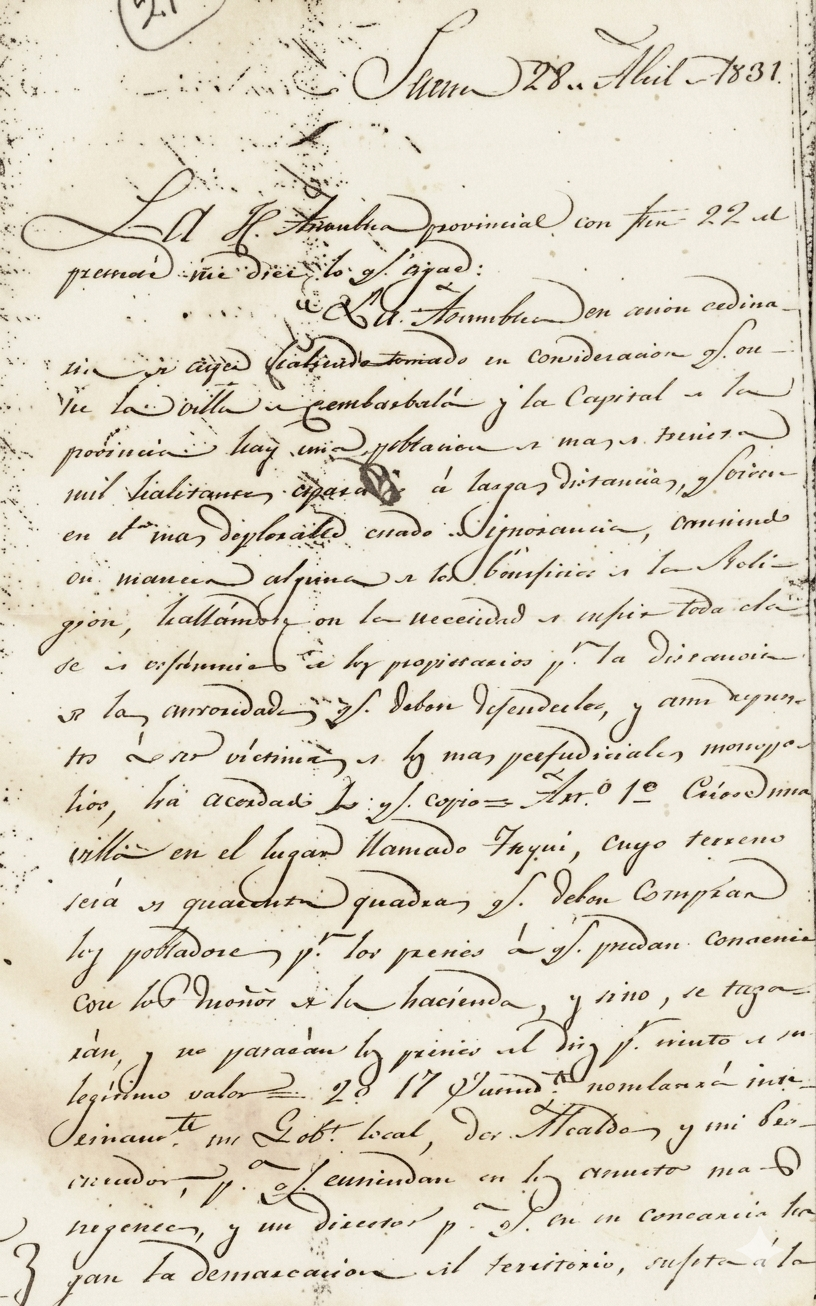 21
Serena 28 de Abril de 1831.
La H. Asamblea provincial con fha 22 del
presente me dice lo qe. sigue:
"La Asamblea en cesion ordina-
ria de ayer habiendo tomado en consideracion qe. en-
tre la villa de Combarbalá y la Capital de la
provincia hay una poblacion de mas de treinta
mil habitantes á largas distancias, qe. viven
en el mas deplorable estado de ignorancia, careciendo
en manera alguna de los beneficios de la Reli-
gion, hallándose en la necesidad de sufrir toda cla-
se de los propietarios pr. la distancia
de las autoridades qe. deben defenderlos, y aun
á ser víctimas de los mas perjudiciales monopo-
lios, ha acordado lo qe. copio = Art.o 1o Críese una
villa en el lugar llamado cuyo terreno
será de quadras qe. deben comprar
los pobladores pr. los precios á qe. puedan convenir
con los dueños de la hacienda, y sino, se tasa-
rán, y no pasarán los precios del diez pr. ciento de su
legítimo valor = 2o nombrará inte-
rinamte. un Gobr. local, dos Alcaldes y un Pro-
curador, pa. qe. entiendan en los asuntos mas
urgentes, y un director pa. qe. en su consorcio ha-
gan la demarcacion del territorio, sujeta á la
3